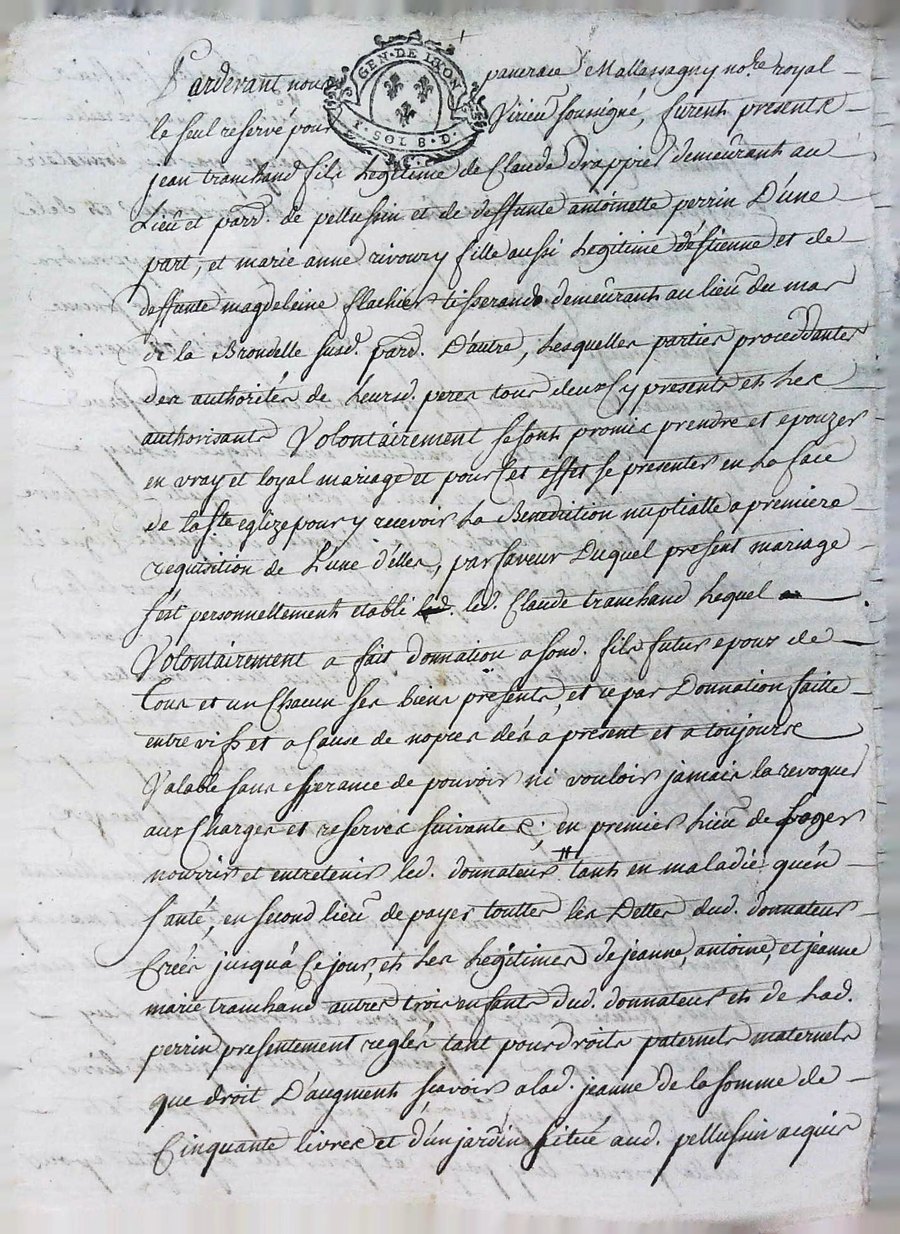 GEN · DE LYON
1 · SOL 8 · D.
Pardevant nous pancrace Mallassagny no.re royal
le seul reservé pour Virieu soussigné, furent presents
jean tranchand fils Legitime de Claude drappier demeurant au
Lieu et parr. de pellussin et de deffunte antoinette perrin D'une
part, et marie anne rivoury fille aussi Legitime d'étienne et de
deffunte magdeleine flachier tisserands demeurants au lieu du mas
de la Brondelle susd. parr. D'autre, Lesquelles parties proceddantes
des authorités de Leursd. peres tous deux Cy presents et Les
authorisants Volontairement se sont promis prendre et epouzer
en vray et loyal mariage et pour Cet effet se presenter en La face
de la S.te eglize pour y recevoir La Benediction nuptialle a premiere
requisition de L'une d'elles, par faveur Duquel present mariage
s'est personnellement etabli led. Claude tranchand Lequel
Volontairement a fait donnation a sond. fils futur epoux de
Tous et un Chacun ses biens presents, et ce par Donnation faitte
entre vifs et a Cause de nopces dés a present et a toujours
Valable sans esperance de pouvoir ni vouloir jamais la revoquer
aux Charges et reserves suivantes; en premier Lieu de loger
nourrir et entretenir led. donnateur tant en maladie qu'en
santé, en second lieu de payer touttes les Dettes dud. donnateur
Créés jusqu'à Ce jour, et Les Legitimes de jeanne, antoine, et jeanne
marie tranchand autres trois enfants dud. donnateur et de Lad.
perrin presentement reglés tant pour droits paternels maternels
que droit D'augment scavoir a lad. jeanne de la somme de
Cinquante livres et d'un jardin situé aud. pellussin acquis